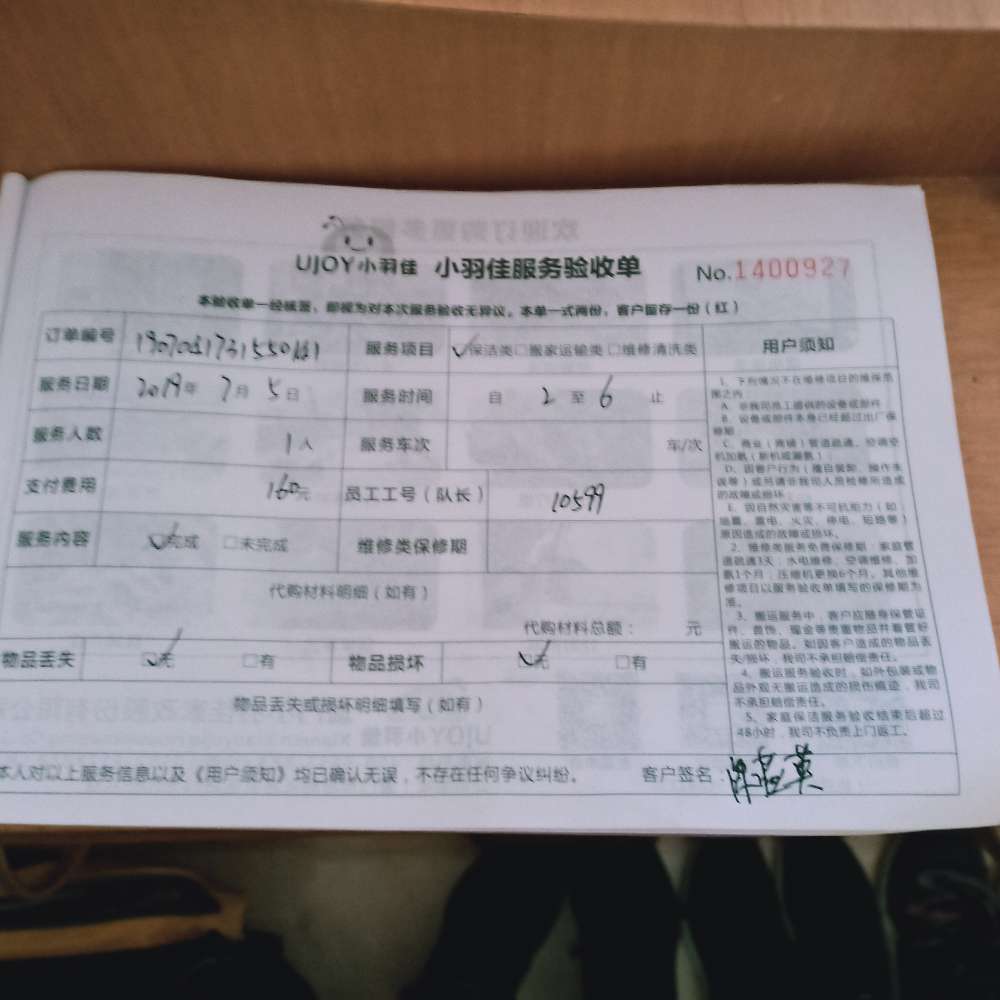 UJOY小羽佳 小羽佳服务验收单 No.1400927
本验收单一经核签，即视为对本次服务验收无异议。本单一式两份，客户留存一份（红）
订单编号 服务项目 ✓保洁类□搬家运输类□维修清洗类
服务日期 2019年 7月 5日 服务时间 自 2 至 6 止
服务人数 1人 服务车次 车/次
支付费用 160元 员工工号（队长） 10599
服务内容 ✓完成 □未完成 维修类保修期
代购材料明细（如有）
代购材料总额： 元
物品丢失 ✓无 □有 物品损坏 ✓无 □有
物品丢失或损坏明细填写（如有）
本人对以上服务信息以及《用户须知》均已确认无误，不存在任何争议纠纷。 客户签名：
用户须知
1、下列情况不在维修项目的维保范
围之内：
A、非我司员工提供的设备或部件
B、设备或部件本身已经超过出厂保
修期
C、商业（商铺）管道疏通、空调安
机加氨（新机或漏氨）
D、因客户行为（擅自装卸、操作失
误等）或另请非我司人员检修所造成
的故障或损坏
E、因自然灾害等不可抗力（如
地震、雷电、火灾、停电、短路等）
原因造成的故障或损坏。
2、维修类服务免费保修期：家庭管
道疏通3天；水电维修、空调维修、加
氨1个月；压缩机更换6个月。其他维
修项目以服务验收单填写的保修期为
准。
3、搬运服务中，客户应随身保管证
件、首饰、现金等贵重物品并看管好
搬运的物品。如因客户造成的物品丢
失/损坏，我司不承担赔偿责任。
4、搬运服务验收时，如外包装或物
品外观无搬运造成的损伤痕迹，我司
不承担赔偿责任。
5、家庭保洁服务验收结束后超过
48小时，我司不负责上门返工。